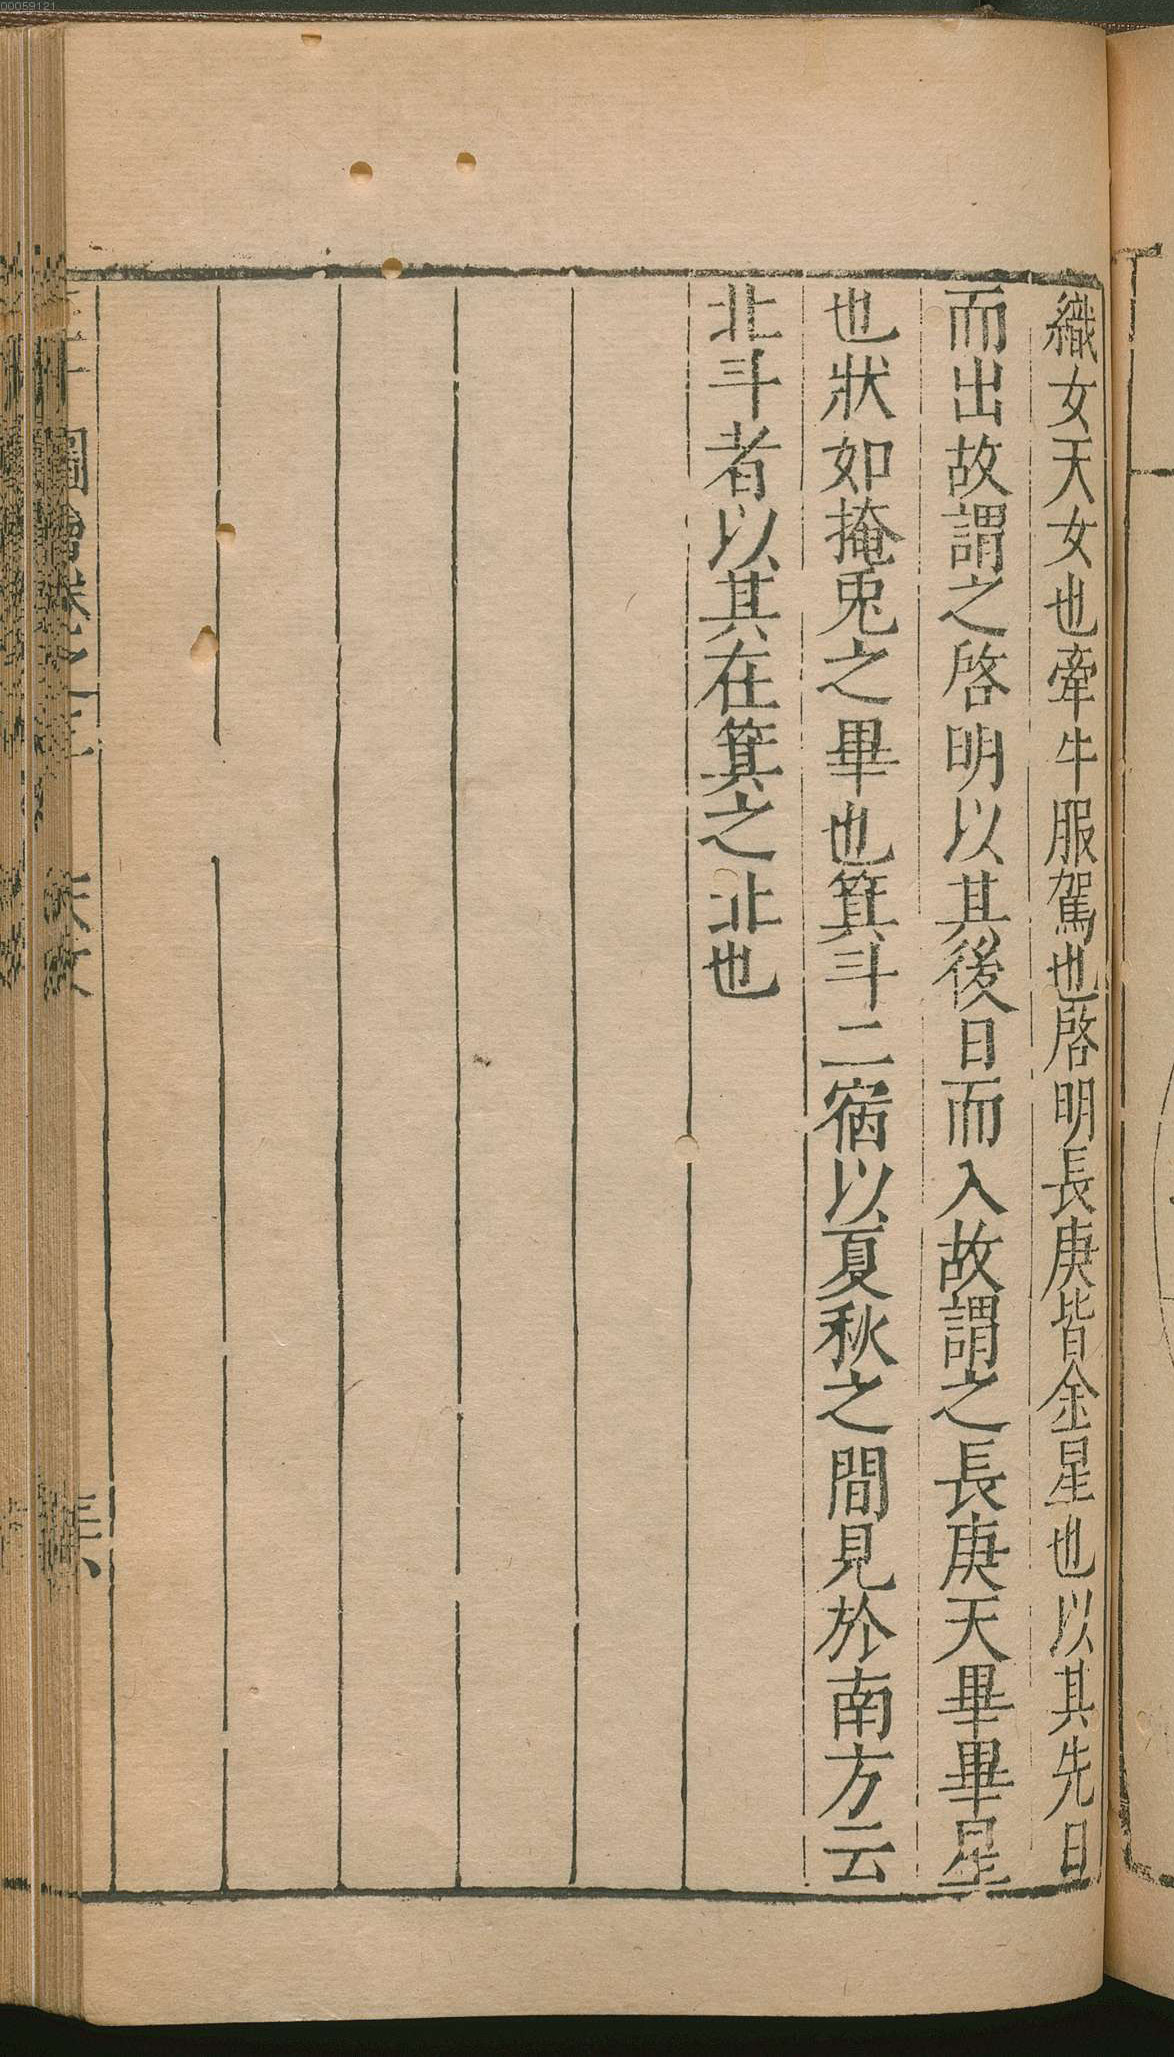 00059121
織女天女也牽牛服駕也啓明長庚皆金星也以其先日
而出故謂之啓明以其後日而入故謂之長庚天畢畢星
也狀如掩兎之畢也箕斗二宿以夏秋之間見於南方云
北斗者以其在箕之北也